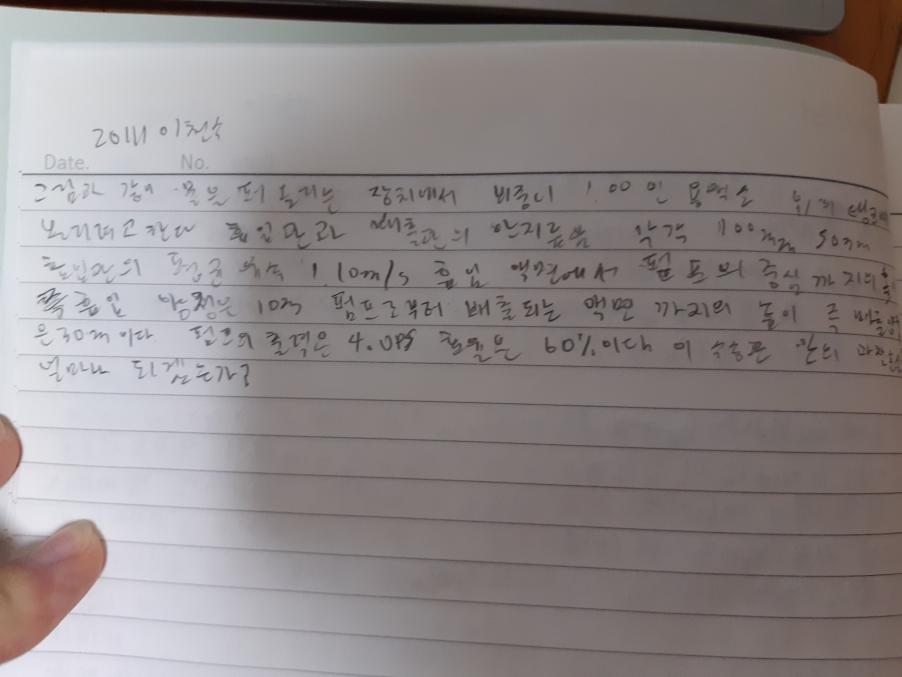 2011 이천수
Date. No.
그림과 같이 물을 퍼 올리는 장치에서 비중이 1.00 인 용액을 위의 탱크에
보내려고 한다 흡입관과 배출관의 안지름은 각각 100mm 50mm
흡입관의 평균 유속 1.10m/s 흡입 액면에서 펌프의 중심 까지의
흡입 양정은 10m 펌프로부터 배출되는 액면 까지의 높이 즉
은 30m 이다. 펌프의 출력은 4.0PS 효율은 60%이다 이 수송관 안의
얼마나 되겠는가?